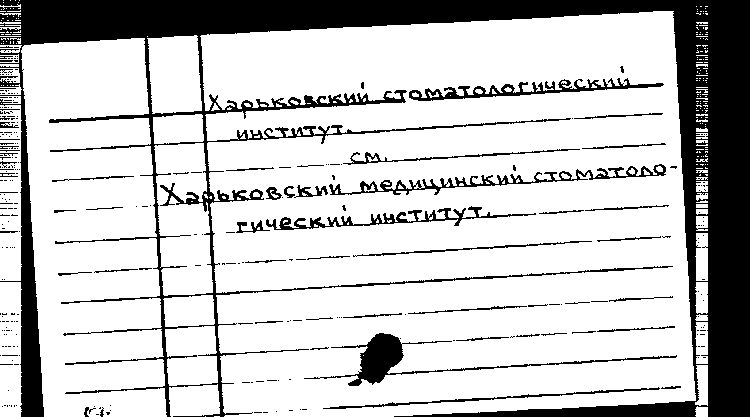 Харьковский стоматологический
институт.
см.
Харьковский медицинский стоматоло-
гический институт.